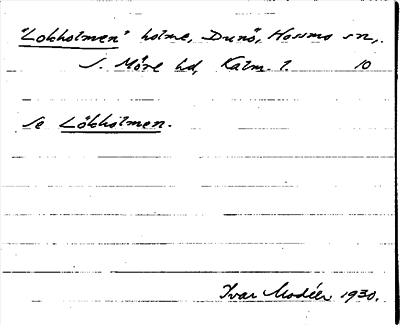 "Lokholmen" holme, Dunö, Hossmo sn,
S. Möre hd, Kalm. l. 10
Se Lökholmen.
Ivar Modéer 1930.